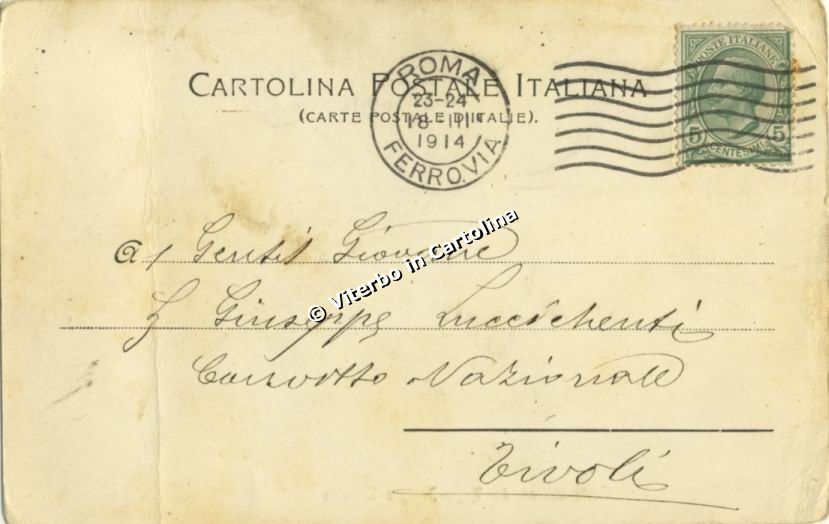 CARTOLINA POSTALE ITALIANA
(CARTE POSTALE D'ITALIE).
ROMA
23-24
18 III
1914
FERROVIA
POSTE ITALIANE
5 5
CENTESIMI
© Viterbo in Cartolina
al Gentil Giovane
Giuseppe Lucchichenti
Convitto Nazionale
Tivoli